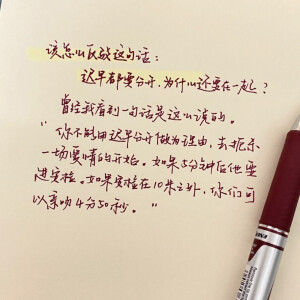 该怎么反驳这句话:
迟早都要分开,为什么还要在一起?
曾经我看到一句话是这么说的。
"你不能用迟早分开做为理由,去拒绝
一场爱情的开始。如果5分钟后他要
进安检。如果安检在10米之外,你们可
以亲吻4分50秒。"